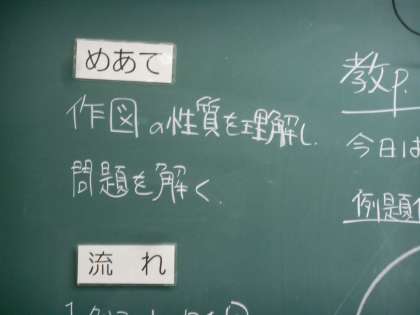 めあて
作図の性質を理解し、
問題を解く。
流れ
教P.
今日は
例題